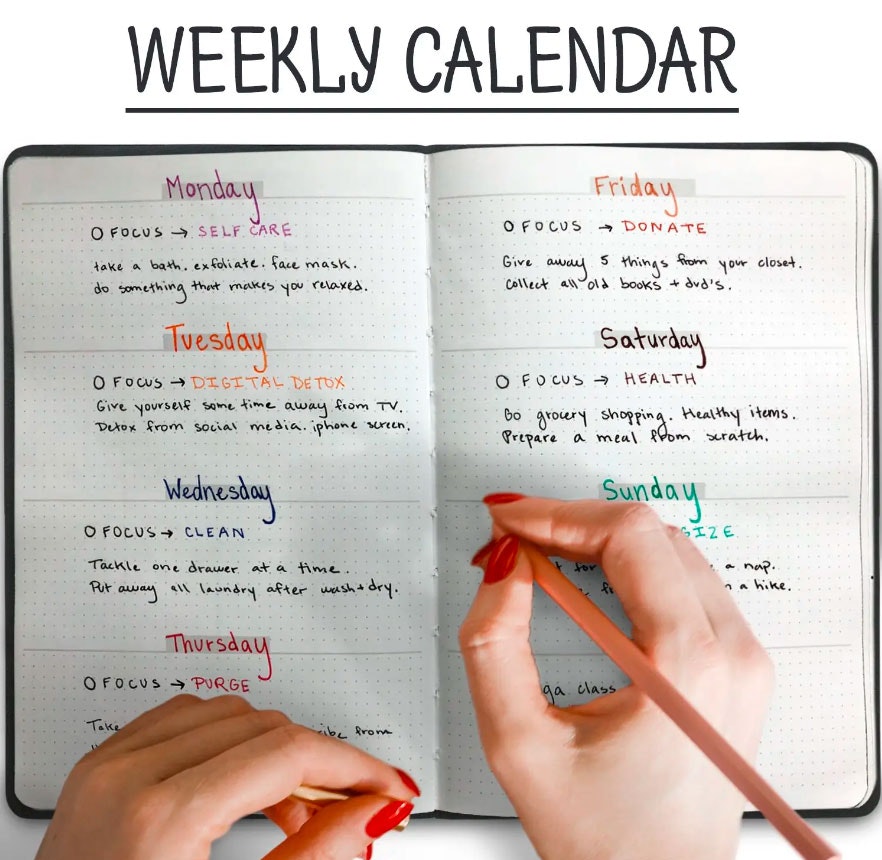 WEEKLY CALENDAR
Monday
O FOCUS → SELF CARE
take a bath. exfoliate. face mask.
do something that makes you relaxed.
Tuesday
O FOCUS → DIGITAL DETOX
Give yourself some time away from TV.
Detox from social media. iphone screen.
Wednesday
O FOCUS → CLEAN
Tackle one drawer at a time.
Put away all laundry after wash + dry.
Thursday
O FOCUS → PURGE
Take from
Friday
O FOCUS → DONATE
Give away 5 things from your closet.
Collect all old books + dvd's.
Saturday
O FOCUS → HEALTH
Go grocery shopping. Healthy items.
Prepare a meal from scratch.
Sunday
a nap.
a hike.
class